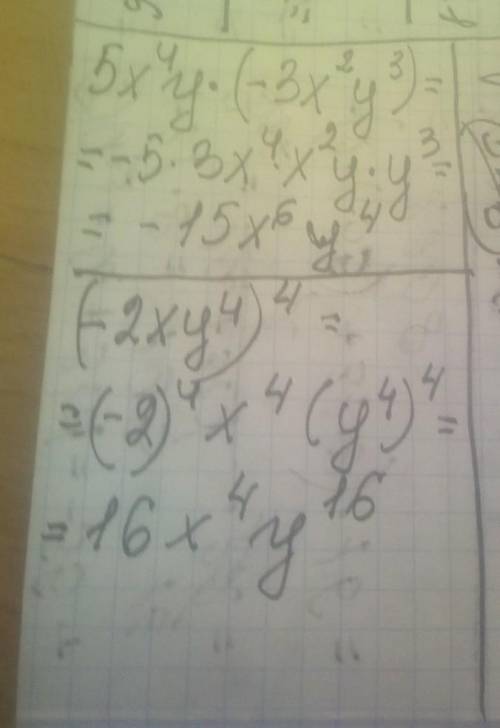 5x⁴y·(-3x²y³)=
=-5·3x⁴·x²y·y³=
=-15x⁶y⁴
(-2xy⁴)⁴=
=(-2)⁴x⁴(y⁴)⁴=
=16x⁴y¹⁶